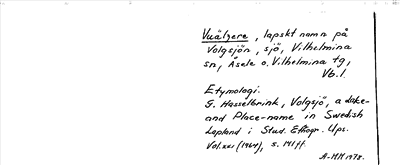 Vuältjere, lapskt namn på
Volgsjön, sjö, Vilhelmina
sn, Åsele o. Vilhelmina tg,
Vb. l.
Etymologi.
G. Hasselbrink, Volgsjö, a Lake-
and Place-name in Swedish
Lapland i Stud. Ethogr. Ups.
Vol. xxi (1964), s. 141 ff.
A-MH 1978.